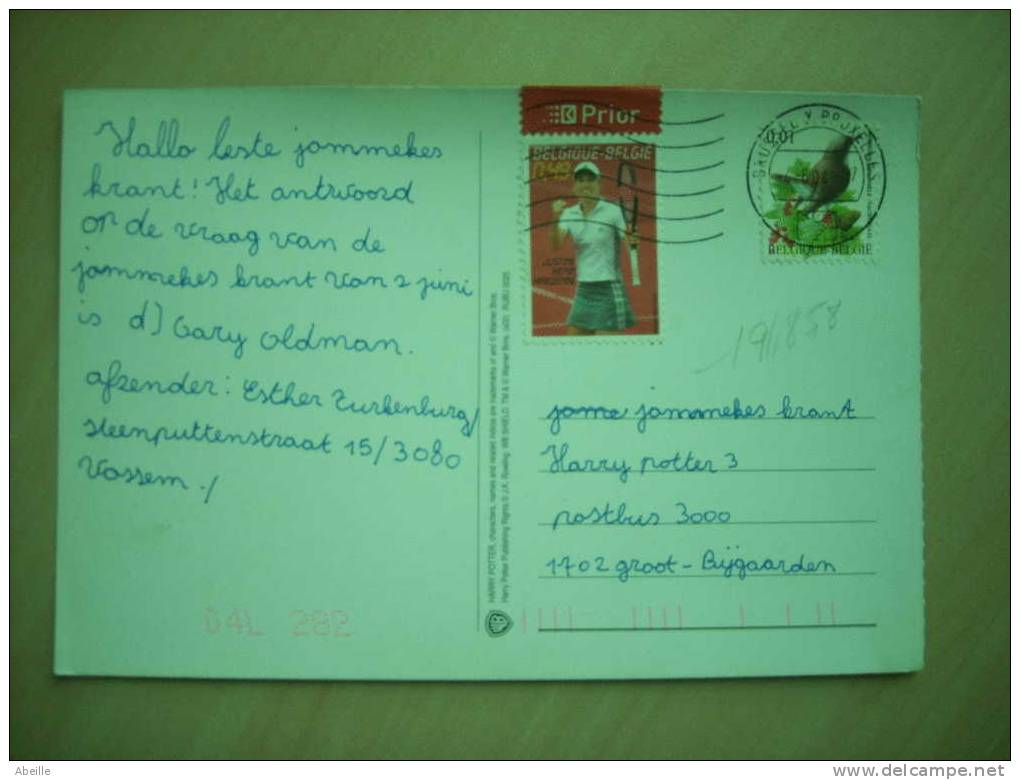 Hallo beste jommekes
krant! Het antwoord
op de vraag van de
jommekes krant van 2 juni
is d) Gary Oldman.
afzender: Esther Turkenburg/
steenputtenstraat 15/3080
Vossem./
04L 282
HARRY POTTER, characters, names and related indicia are trademarks of and © Warner Bros.
Harry Potter Publishing Rights © J.K. Rowling. WB SHIELD: TM & © Warner Bros.
Prior
BELGIQUE-BELGIE
0,49
JUSTINE
HENIN
HARDENNE
0,01
BELGIQUE BELGIE
191858
jome jommekes krant
Harry potter 3
postbus 3000
1702 groot-Bijgaarden
Abeille
www.delcampe.net